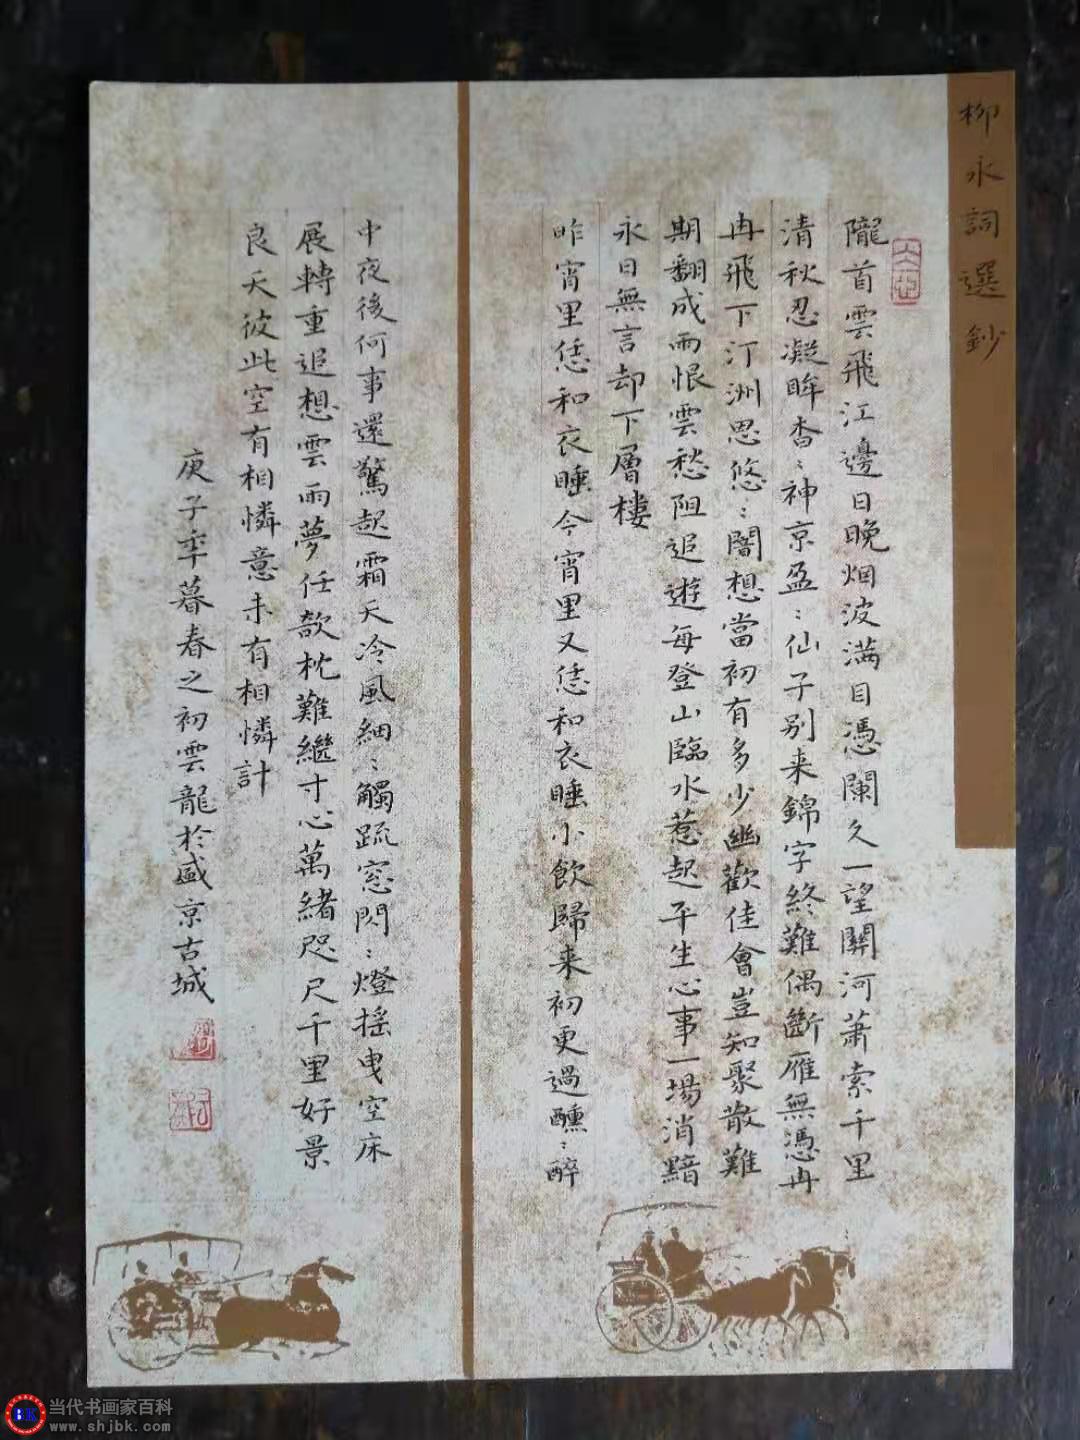 柳永詞選鈔
隴首雲飛江邊日晚烟波满目憑闌久一望關河萧索千里
清秋忍凝眸杳〻神京盈〻仙子别来錦字終難偶斷雁無憑冉
冉飛下汀洲思悠〻闇想當初有多少幽歡佳會豈知聚散難
期翻成雨恨雲愁阻追遊每登山臨水惹起平生心事一場消黯
永日無言却下層樓
昨宵里恁和衣睡今宵里又恁和衣睡小飲歸来初更過醺〻醉
中夜後何事還驚起霜天冷風細〻觸疏窓閃〻燈摇曳空床
展轉重追想雲雨夢任欹枕難繼寸心萬緒咫尺千里好景
良天彼此空有相憐意未有相憐計
庚子年暮春之初雲龍於盛京古城
当代书画家百科
www.shjbk.com
BK